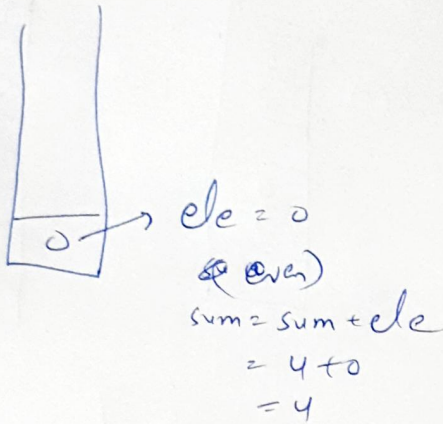 0 → ele = 0
(even)
sum = sum + ele
= 4 + 0
= 4